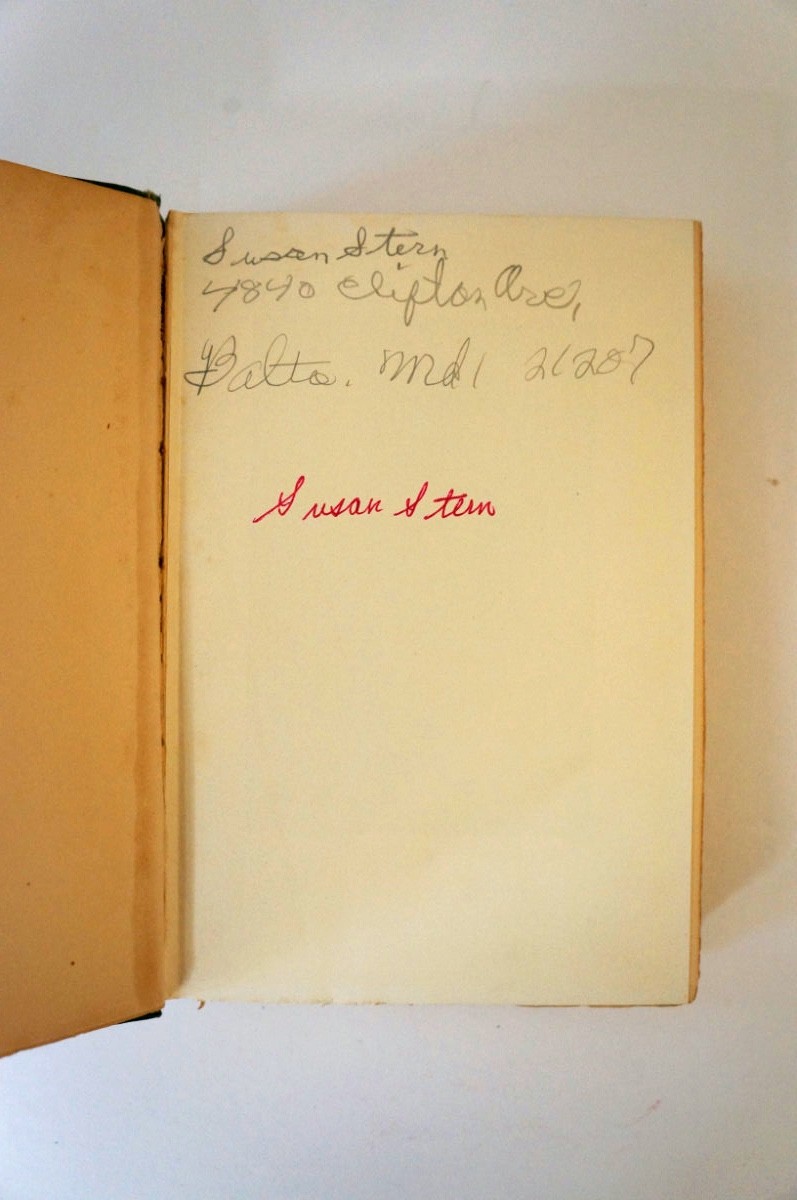 Susan Stern
4840 Clifton Ave,
Balto. Md. 21207
Susan Stern